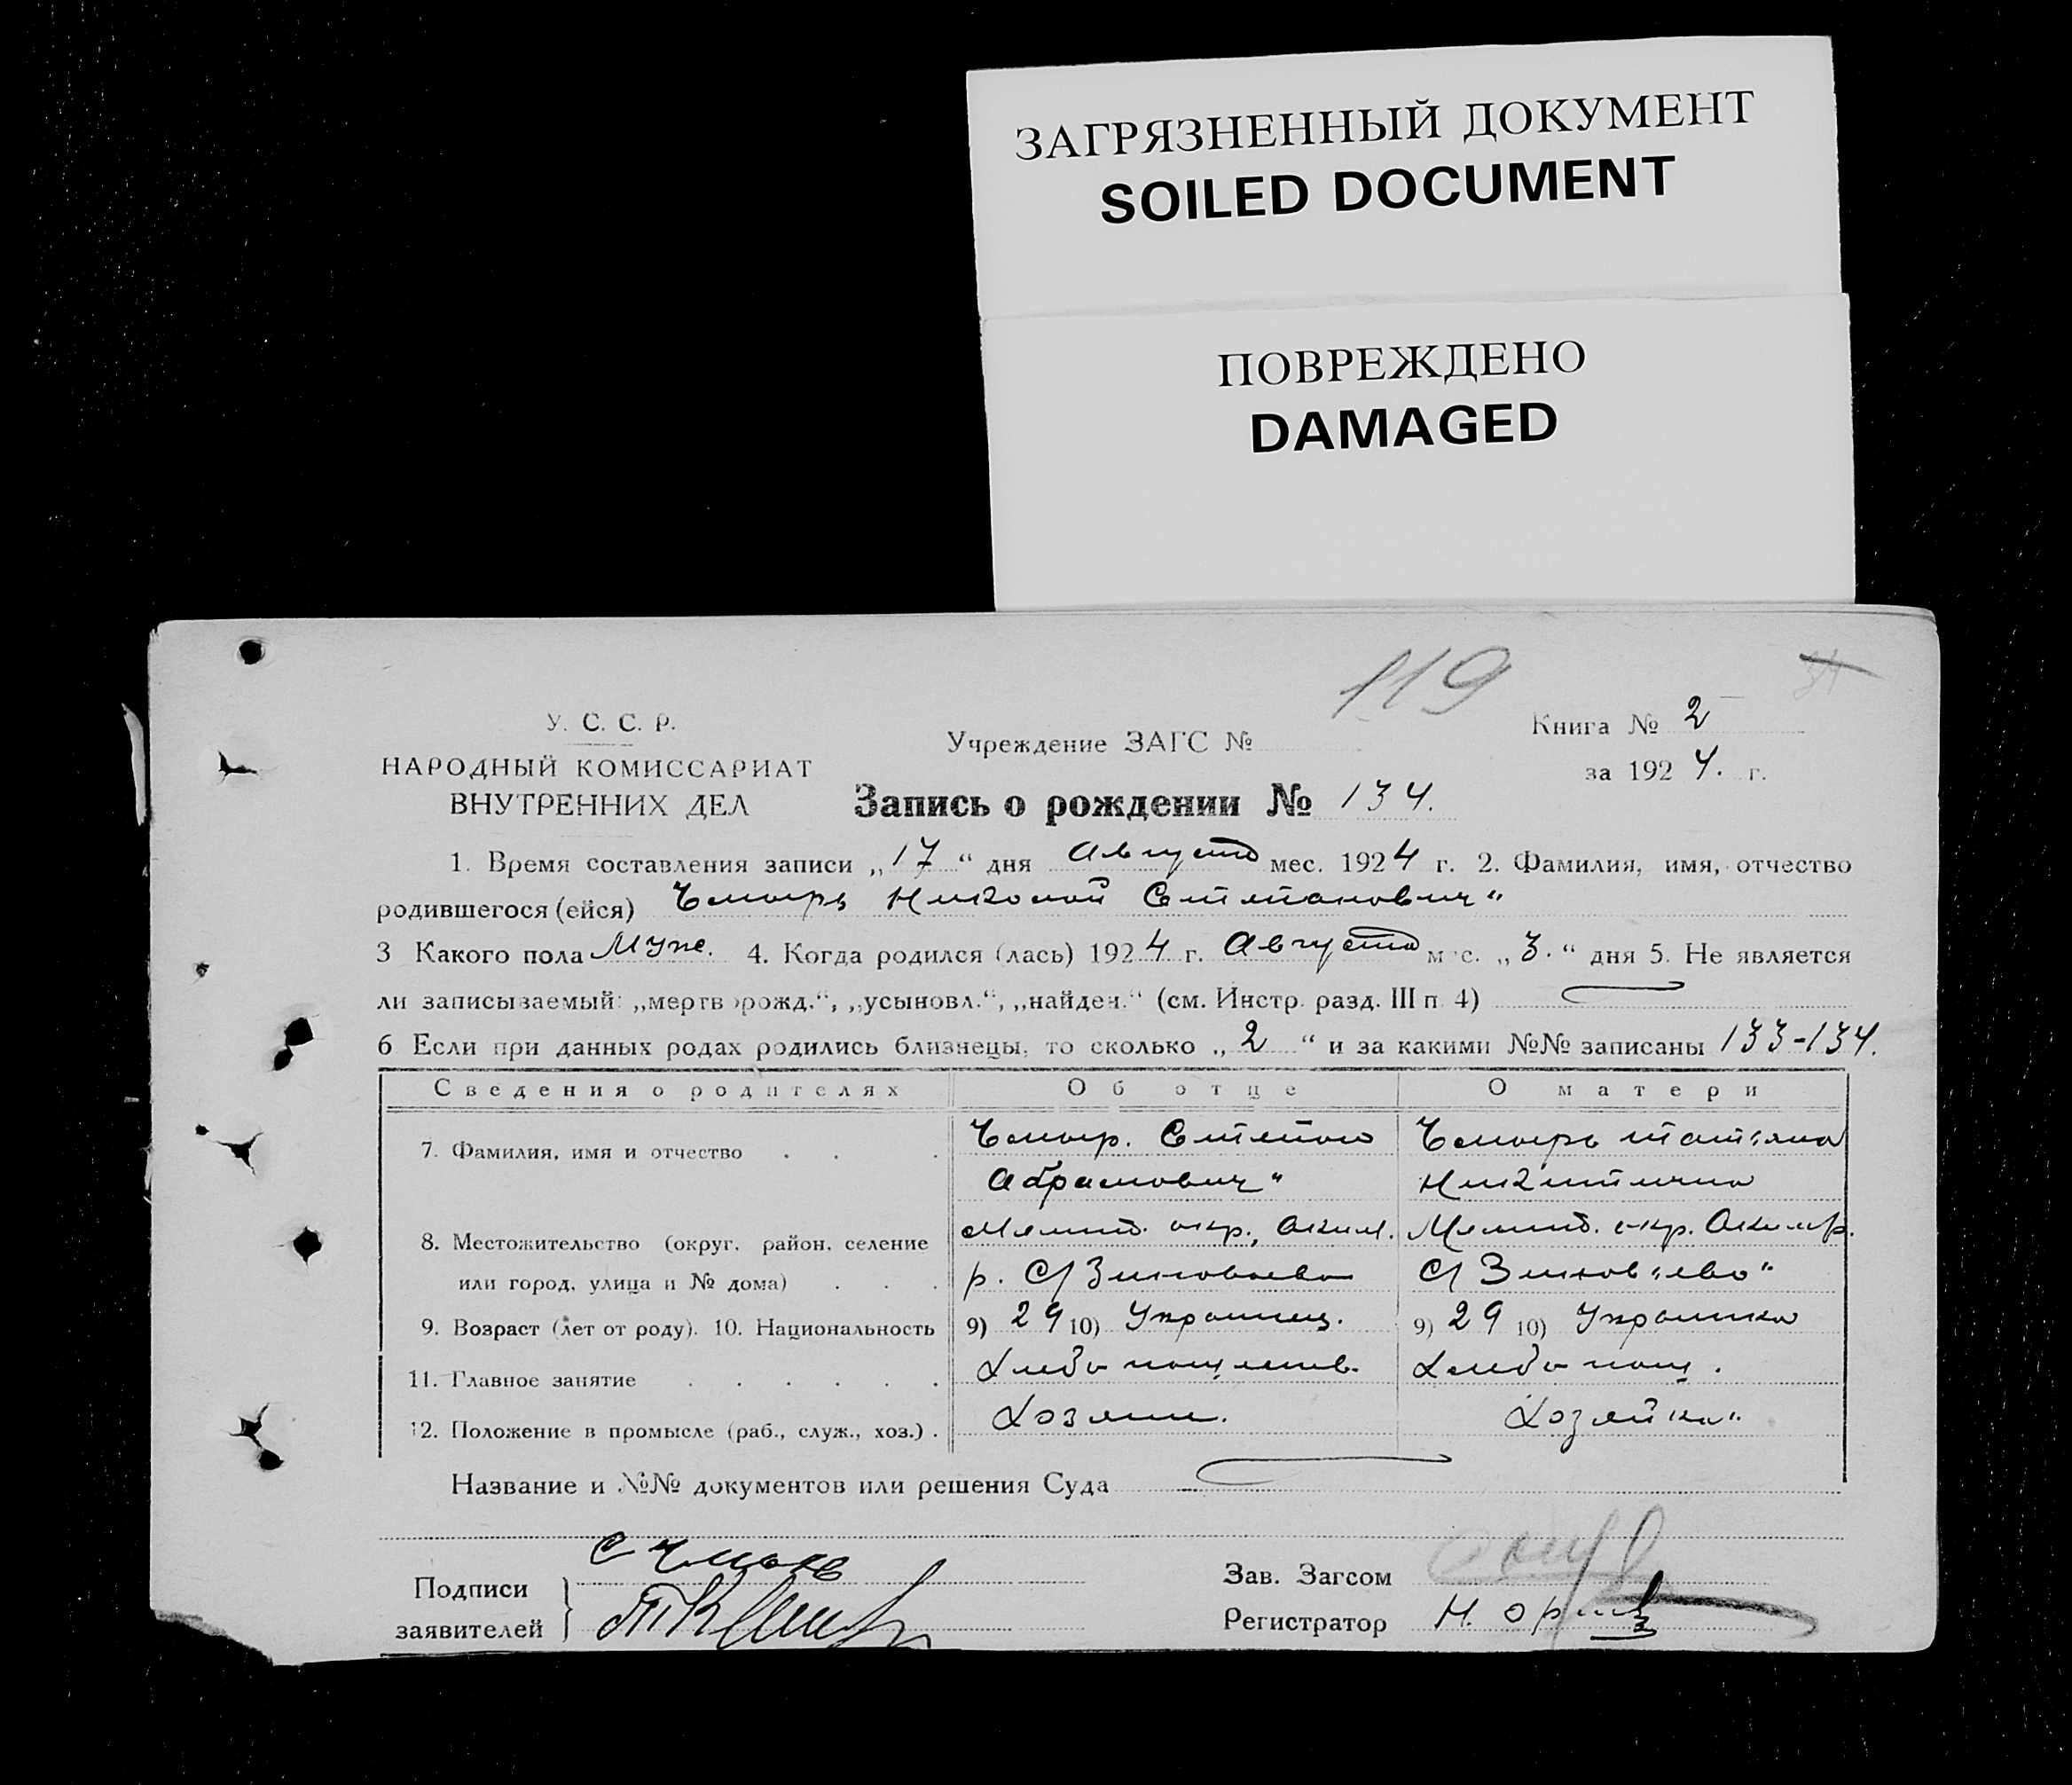 ЗАГРЯЗНЕННЫЙ ДОКУМЕНТ
SOILED DOCUMENT
ПОВРЕЖДЕНО
DAMAGED
119
У. С. С. Р.
НАРОДНЫЙ КОМИССАРИАТ
ВНУТРЕННИХ ДЕЛ
Учреждение ЗАГС №
Книга № 2
за 1924. г.
Запись о рождении № 134.
1. Время составления записи „17“ дня Августа мес. 1924 г. 2. Фамилия, имя, отчество
родившегося (ейся) Чмырь Николай Степанович
3 Какого пола Муж. 4. Когда родился (лась) 1924 г. Августа мес. „3.“ дня 5. Не является
ли записываемый: „мертворожд.“, „усыновл.“, „найден.“ (см. Инстр. разд. III п. 4)
6 Если при данных родах родились близнецы, то сколько „2“ и за какими №№ записаны 133-134.
Сведения о родителях Об отце О матери
7. Фамилия, имя и отчество Чмыр. Степан Чмырь Татьяна
Абрамович Никитична
8. Местожительство (округ, район, селение Мелит. окр., Аким. Мелит. окр. Аким р.
или город, улица и № дома) р. С/ Зиновьево С/ Зиновьево
9. Возраст (лет от роду). 10. Национальность 9) 29 10) Украинец. 9) 29 10) Украинка
11. Главное занятие Хлебопашество. Хлебопаш.
12. Положение в промысле (раб., служ., хоз.) Хозяин. Хозяйка
Название и №№ документов или решения Суда
Подписи
заявителей
Зав. Загсом
Регистратор Н.